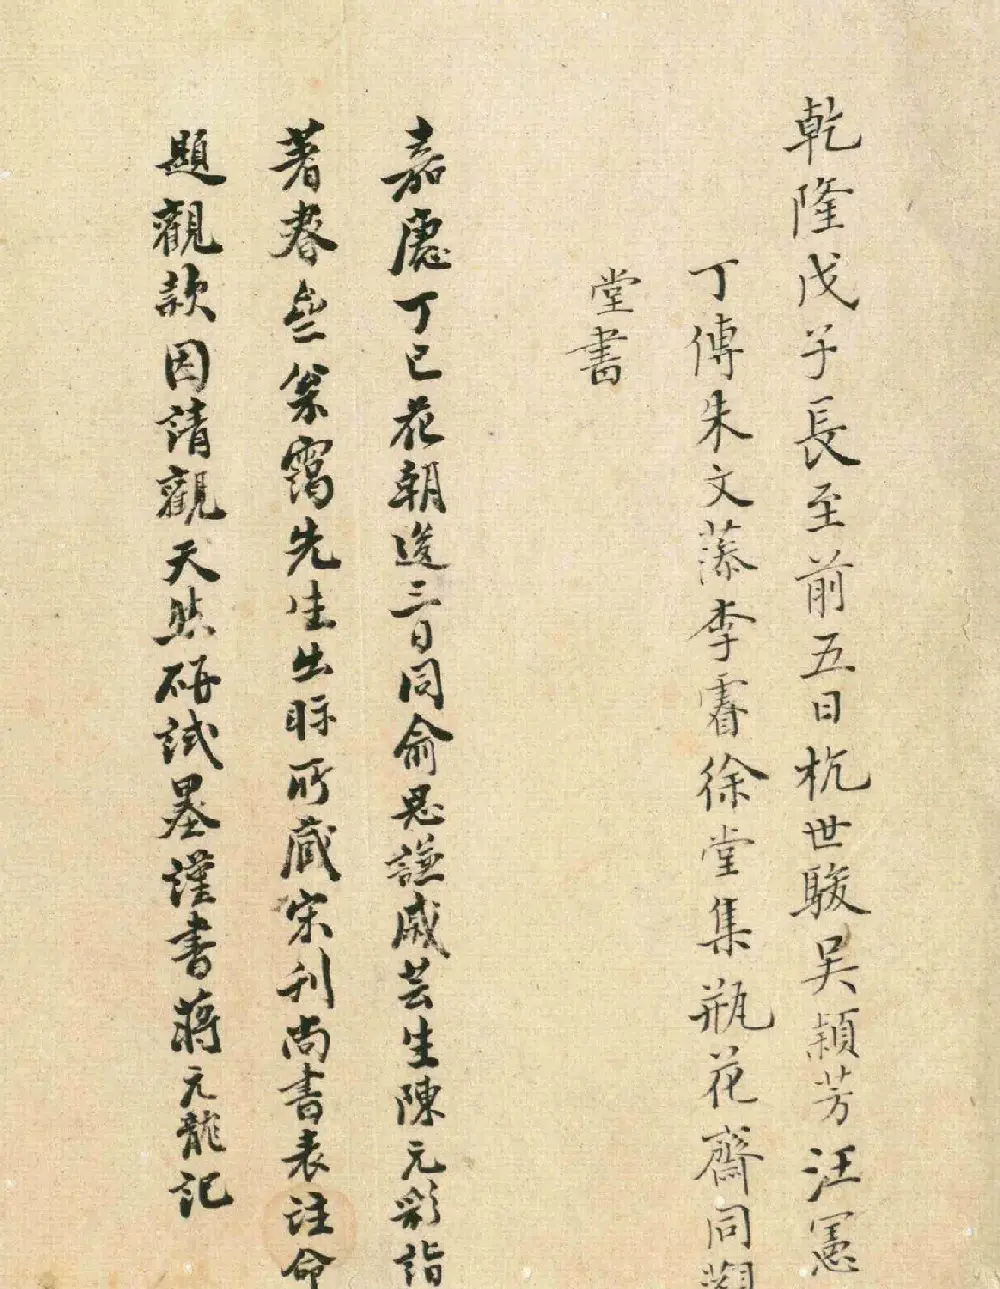 乾隆戊子長至前五日杭世駿吳穎芳汪憲
丁傳朱文藻李睿徐堂集瓶花齋同觀
堂書
嘉慶丁巳花朝後三日同俞思謙戚芸生陳元彩詣
著書叁翁靄先生出眎所藏宋刊尚書表注命
題觀款因請觀天然硏試墨謹書蔣元龍記